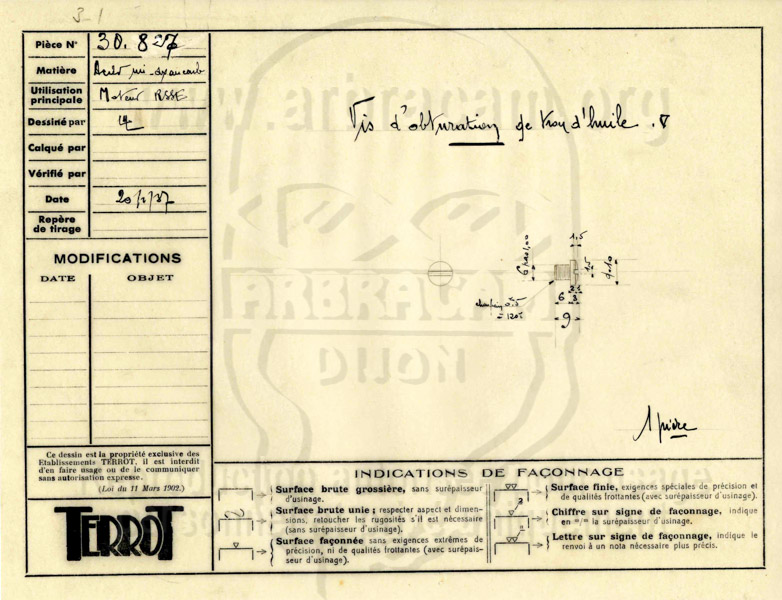 3-1
Pièce N° 30.827
Matière Acier mi-dur
Utilisation principale Moteur RSSE
Dessiné par
Calqué par
Vérifié par
Date 20/1/37
Repère de tirage
MODIFICATIONS
DATE OBJET
Vis d'obturation de trou d'huile . ▽
www.arbracam.org
ARBRACAM
DIJON
1,5
6 pas 1,00
1,5
φ10
chanfrein 0.5
= 120°
6 3
9
1 pièce
Ce dessin est la propriété exclusive des
Etablissements TERROT, il est interdit
d'en faire usage ou de le communiquer
sans autorisation expresse.
(Loi du 11 Mars 1902.)
TERROT
INDICATIONS DE FAÇONNAGE
Surface brute grossière, sans surépaisseur
d'usinage.
Surface brute unie ; respecter aspect et dimen-
sions, retoucher les rugosités s'il est nécessaire
(sans surépaisseur d'usinage).
Surface façonnée sans exigences extrêmes de
précision, ni de qualités frottantes (avec surépais-
seur d'usinage).
Surface finie, exigences spéciales de précision et
de qualités frottantes (avec surépaisseur d'usinage).
Chiffre sur signe de façonnage, indique
en m/m la surépaisseur d'usinage.
Lettre sur signe de façonnage, indique le
renvoi à un nota nécessaire plus précis.